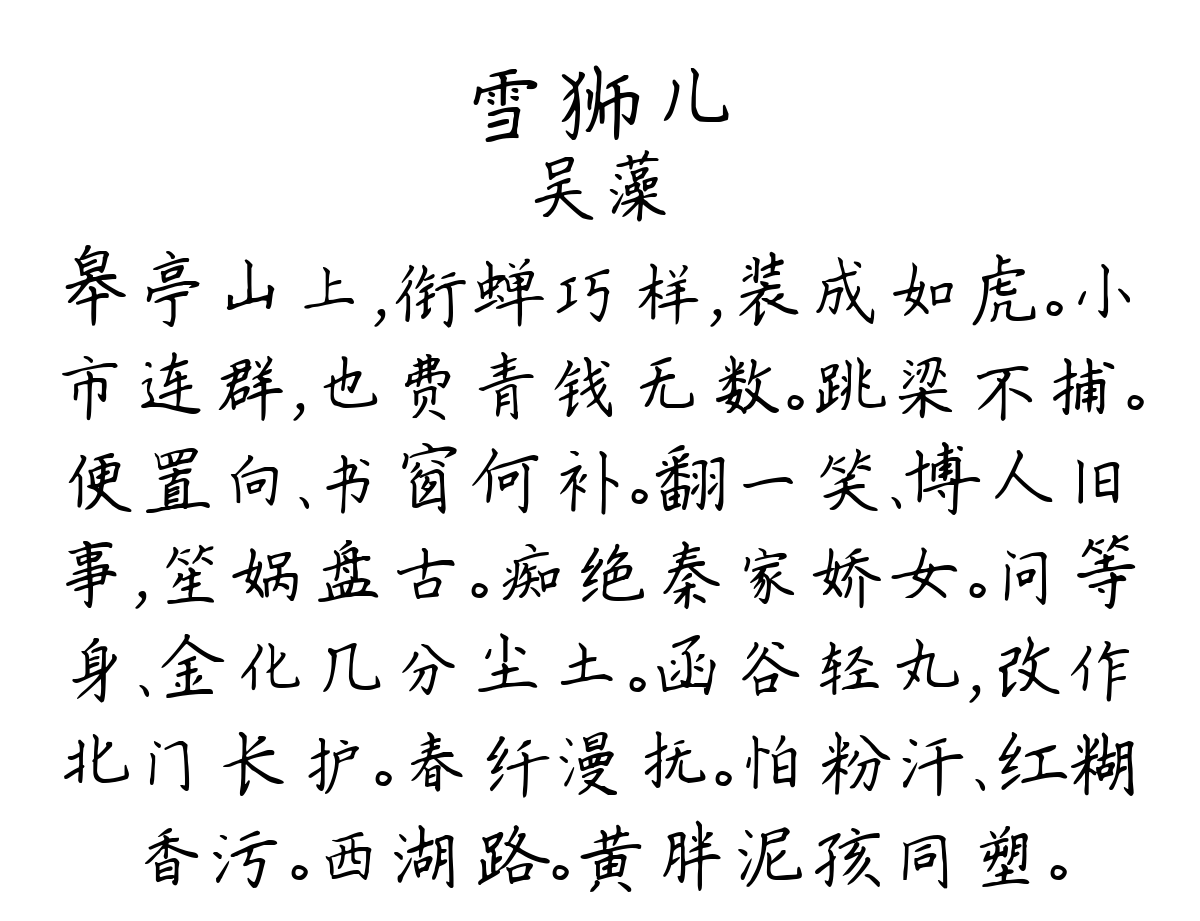 雪狮儿
吴藻
皋亭山上,衔蝉巧样,装成如虎。小
市连群,也费青钱无数。跳梁不捕。
便置向、书窗何补。翻一笑、博人旧
事,笙娲盘古。痴绝秦家娇女。问等
身、金化几分尘土。函谷轻丸,改作
北门长护。春纤漫抚。怕粉汗、红糊
香污。西湖路。黄胖泥孩同塑。